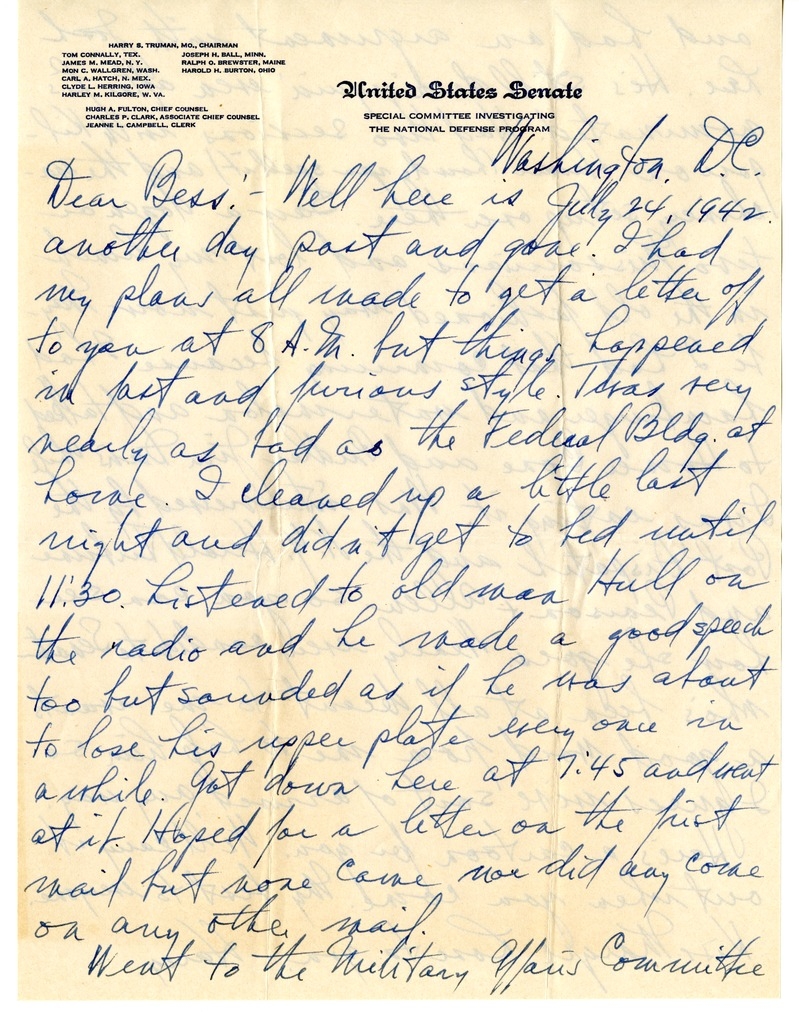 HARRY S. TRUMAN, MO., CHAIRMAN
TOM CONNALLY, TEX. JOSEPH H. BALL, MINN.
JAMES M. MEAD, N. Y. RALPH O. BREWSTER, MAINE
MON C. WALLGREN, WASH. HAROLD H. BURTON, OHIO
CARL A. HATCH, N. MEX.
CLYDE L. HERRING, IOWA
HARLEY M. KILGORE, W. VA.
HUGH A. FULTON, CHIEF COUNSEL
CHARLES P. CLARK, ASSOCIATE CHIEF COUNSEL
JEANNE L. CAMPBELL, CLERK
United States Senate
SPECIAL COMMITTEE INVESTIGATING
THE NATIONAL DEFENSE PROGRAM
Washington, D.C.
July 24, 1942.
Dear Bess:- Well here is
another day past and gone. I had
my plans all made to get a letter off
to you at 8 A.M. but things happened
in fast and furious style. Twas very
nearly as bad as the Federal Bldg. at
home. I cleaned up a little last
night and didn't get to bed until
11:30. Listened to old man Hull on
the radio and he made a good speech
too but sounded as if he was about
to lose his upper plate every once in
a while. Got down here at 7:45 and went
at it. Hoped for a letter on the first
mail but none came nor did any come
on any other mail.
Went to the Military Affairs Committee